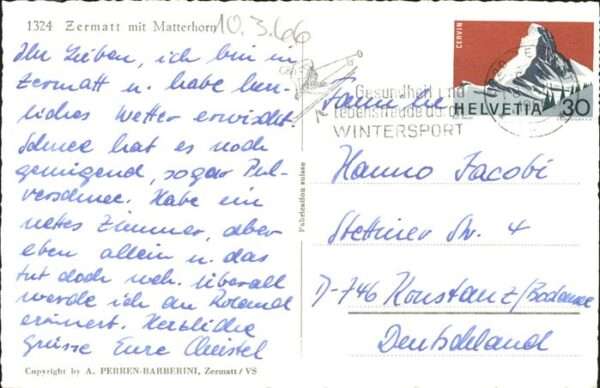 1324 Zermatt mit Matterhorn
10.3.66
Ihr Lieben, ich bin in
Zermatt u. habe herr-
liches Wetter erwischt.
Schnee hat es noch
genügend, sogar Pul-
verschnee. Habe ein
nettes Zimmer, aber
eben allein u. das
tut doch weh. Überall
werde ich an Roland
erinnert. Herzliche
Grüsse Eure Christel
Copyright by A. PERREN-BARBERINI, Zermatt/VS
Fabrication suisse
CERVIN
HELVETIA 30
Gesundheit und
Lebensfreude durch
WINTERSPORT
Familie
Hanno Jacobi
Stettiner Str. 4
D-746 Konstanz/Bodensee
Deutschland